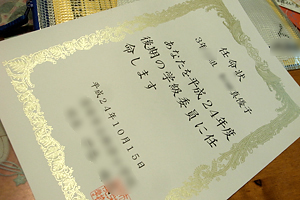 任命状
3年 真優子
あなたを平成24年度
後期の学級委員に任
命します
平成24年10月15日